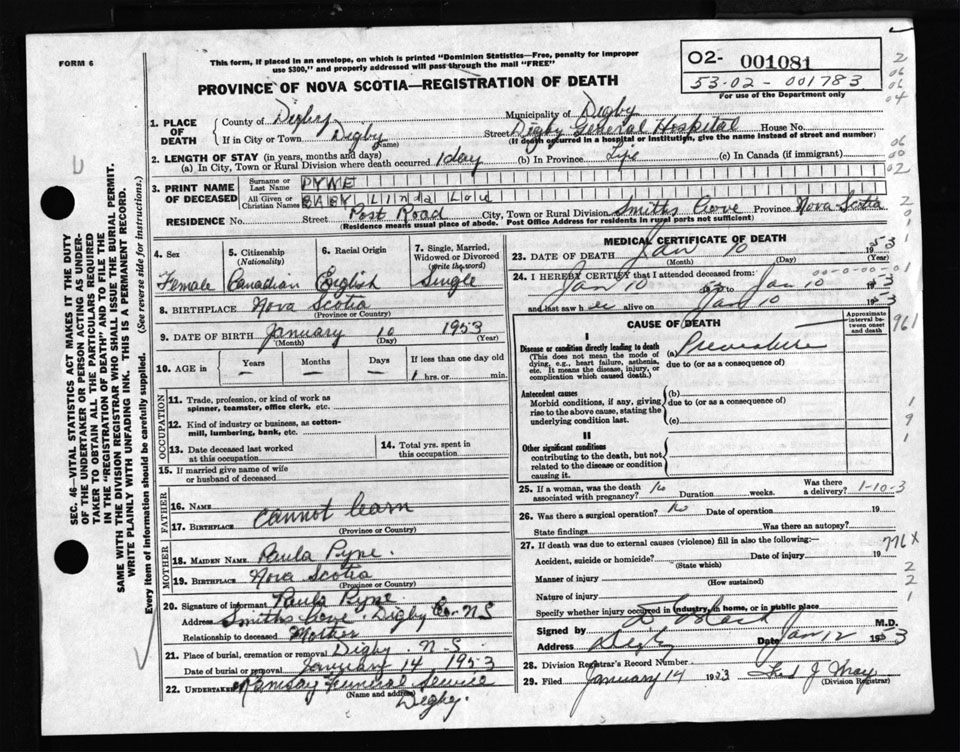 FORM 6
This form, if placed in an envelope, on which is printed "Dominion Statistics—Free, penalty for improper
use $300," and properly addressed will pass through the mail "FREE"
02- 001081
53-02-001783
For use of the Department only
PROVINCE OF NOVA SCOTIA—REGISTRATION OF DEATH
1. PLACE OF DEATH
County of Digby Municipality of Digby
If in City or Town Digby (Name) Street Digby General Hospital House No.
(If death occurred in a hospital or institution, give the name instead of street and number)
2. LENGTH OF STAY (in years, months and days)
(a) In City, Town or Rural Division where death occurred 1 day (b) In Province Life (c) In Canada (if immigrant)
3. PRINT NAME OF DECEASED
Surname or Last Name PYNE
All Given or Christian Names BABY Linda Lou
RESIDENCE No. Street Post Road City, Town or Rural Division Smiths Cove Province Nova Scotia
(Residence means usual place of abode. Post Office Address for residents in rural parts not sufficient)
4. Sex
Female
5. Citizenship (Nationality)
Canadian
6. Racial Origin
English
7. Single, Married, Widowed or Divorced (Write the word)
Single
8. BIRTHPLACE Nova Scotia
(Province or Country)
9. DATE OF BIRTH January 10 1953
(Month) (Day) (Year)
10. AGE in Years Months Days If less than one day old
— — — 1 hrs. or min.
OCCUPATION
11. Trade, profession, or kind of work as
spinner, teamster, office clerk, etc.
12. Kind of industry or business, as cotton-
mill, lumbering, bank, etc.
13. Date deceased last worked
at this occupation
14. Total yrs. spent in
this occupation
15. If married give name of wife
or husband of deceased
FATHER
16. Name
cannot learn
17. BIRTHPLACE
(Province or Country)
MOTHER
18. MAIDEN NAME Paula Pyne.
19. BIRTHPLACE Nova Scotia
(Province or Country)
20. Signature of informant Paula Pyne.
Address Smiths Cove. Digby Co. N S
Relationship to deceased Mother
21. Place of burial, cremation or removal Digby. N. S.
Date of burial or removal January 14, 1953
22. Undertaker Ramsay Funeral Service
(Name and address)
Digby.
MEDICAL CERTIFICATE OF DEATH
23. DATE OF DEATH Jan 10 1953
(Month) (Day) (Year)
24. I HEREBY CERTIFY that I attended deceased from
Jan 10 1953 to Jan 10 1953
and last saw h er alive on Jan 10 1953
CAUSE OF DEATH
Approximate interval between onset and death
I
Disease or condition directly leading to death
(This does not mean the mode of
dying, e.g., heart failure, asthenia,
etc. It means the disease, injury, or
complication which caused death.)
(a) Premature
due to (or as a consequence of)
Antecedent causes
Morbid conditions, if any, giving
rise to the above cause, stating the
underlying condition last.
(b)
due to (or as a consequence of)
(c)
II
Other significant conditions
contributing to the death, but not
related to the disease or condition
causing it.
25. If a woman, was the death
associated with pregnancy? No Duration weeks. Was there a delivery? 1-10-3
26. Was there a surgical operation? No Date of operation 19
State findings Was there an autopsy?
27. If death was due to external causes (violence) fill in also the following:—
Accident, suicide or homicide? Date of injury 19
(State which)
Manner of injury
(How sustained)
Nature of injury
Specify whether injury occurred in industry, in home, or in public place
Signed by M.D.
Address Digby Date Jan 12 1953
28. Division Registrar's Record Number
29. Filed January 14 1953
(Division Registrar)
961
776X
SEC. 46—VITAL STATISTICS ACT MAKES IT THE DUTY
OF THE UNDERTAKER OR PERSON ACTING AS UNDER-
TAKER TO OBTAIN ALL THE PARTICULARS REQUIRED
IN THE "REGISTRATION OF DEATH" AND TO FILE THE
SAME WITH THE DIVISION REGISTRAR WHO SHALL ISSUE THE BURIAL PERMIT.
WRITE PLAINLY WITH UNFADING INK. THIS IS A PERMANENT RECORD.
Every item of information should be carefully supplied. (See reverse side for instructions.)